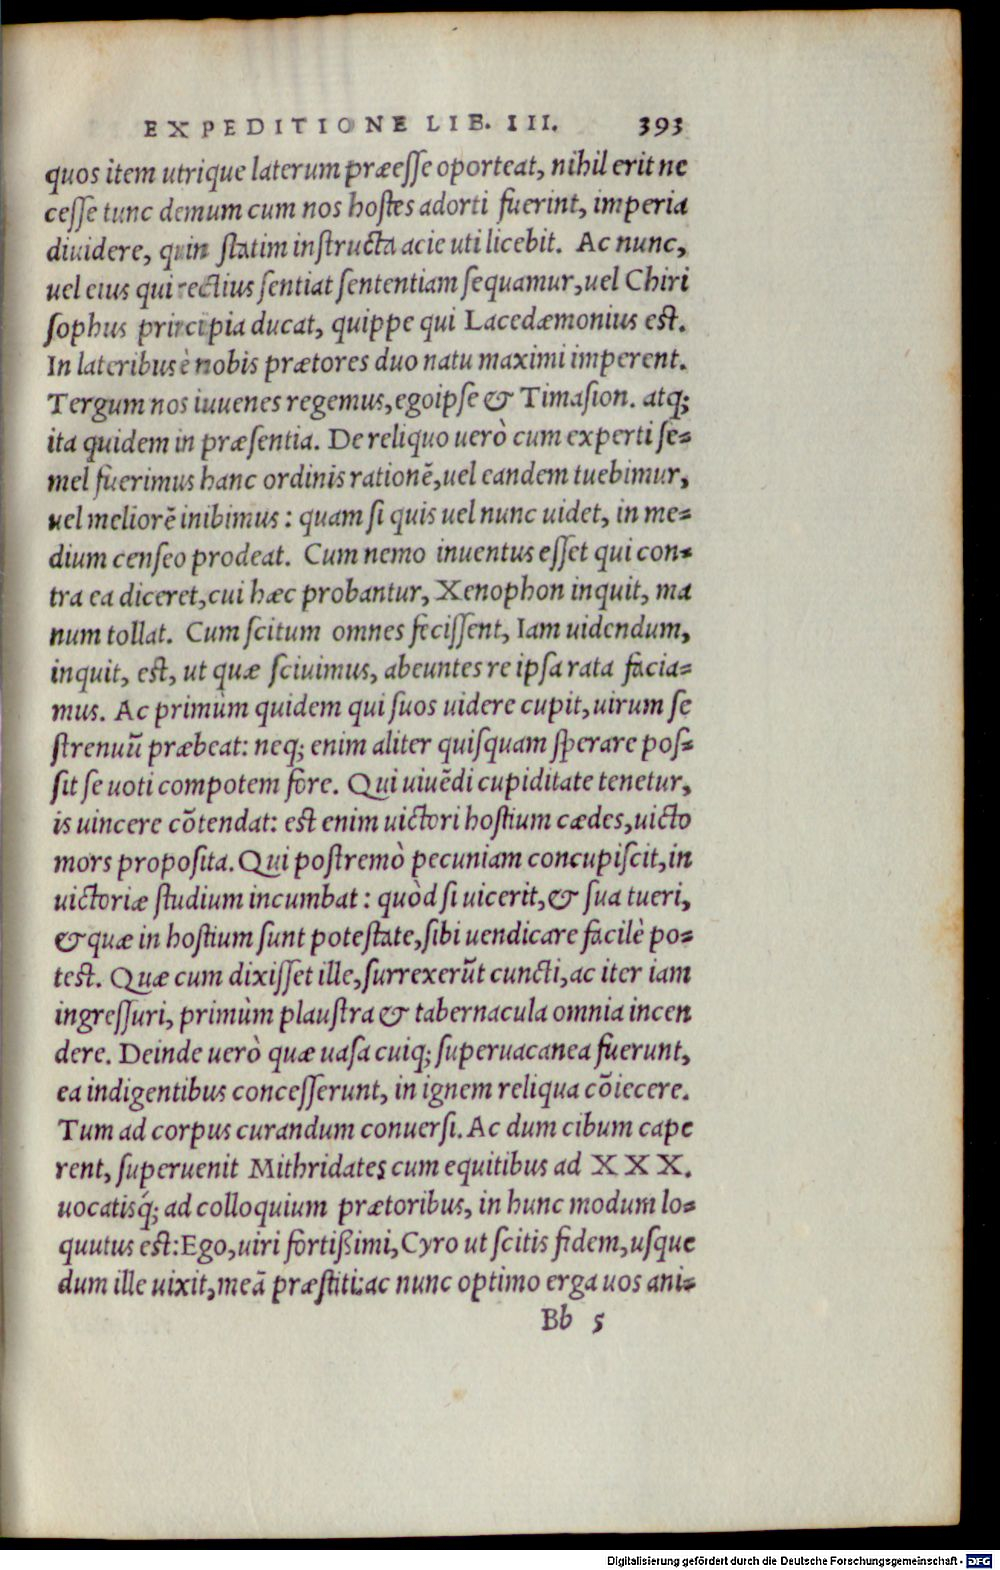 EXPEDITIONE LIB. III. 393
quos item utrique laterum præesse oporteat, nihil erit ne
cesse tunc demum cum nos hostes adorti fuerint, imperia
diuidere, quin statim instructa acie uti licebit. Ac nunc,
uel eius qui rectius sentiat sententiam sequamur, uel Chiri
sophus principia ducat, quippe qui Lacedæmonius est.
In lateribus è nobis prætores duo natu maximi imperent.
Tergum nos iuuenes regemus, ego ipse & Timasion. atq;
ita quidem in præsentia. De reliquo uerò cum experti se=
mel fuerimus hanc ordinis rationē, uel eandem tuebimur,
uel meliorē inibimus: quam si quis uel nunc uidet, in me=
dium censeo prodeat. Cum nemo inuentus esset qui con=
tra ea diceret, cui hæc probantur, Xenophon inquit, ma
num tollat. Cum scitum omnes fecissent, Iam uidendum,
inquit, est, ut quæ sciuimus, abeuntes re ipsa rata facia=
mus. Ac primùm quidem qui suos uidere cupit, uirum se
strenuū præbeat: neq; enim aliter quisquam sperare pos=
sit se uoti compotem fore. Qui uiuēdi cupiditate tenetur,
is uincere cōtendat: est enim uictori hostium cædes, uicto
mors proposita. Qui postremò pecuniam concupiscit, in
uictoriæ studium incumbat: quòd si uicerit, & sua tueri,
& quæ in hostium sunt potestate, sibi uendicare facilè po=
test. Quæ cum dixisset ille, surrexerūt cuncti, ac iter iam
ingressuri, primùm plaustra & tabernacula omnia incen
dere. Deinde uerò quæ uasa cuiq; superuacanea fuerunt,
ea indigentibus concesserunt, in ignem reliqua cōiecere.
Tum ad corpus curandum conuersi. Ac dum cibum cape
rent, superuenit Mithridates cum equitibus ad XXX.
uocatisq́; ad colloquium prætoribus, in hunc modum lo=
quutus est: Ego, uiri fortißimi, Cyro ut scitis fidem, usque
dum ille uixit, meā præstiti: ac nunc optimo erga uos ani=
Bb 5
Digitalisierung gefördert durch die Deutsche Forschungsgemeinschaft - DFG